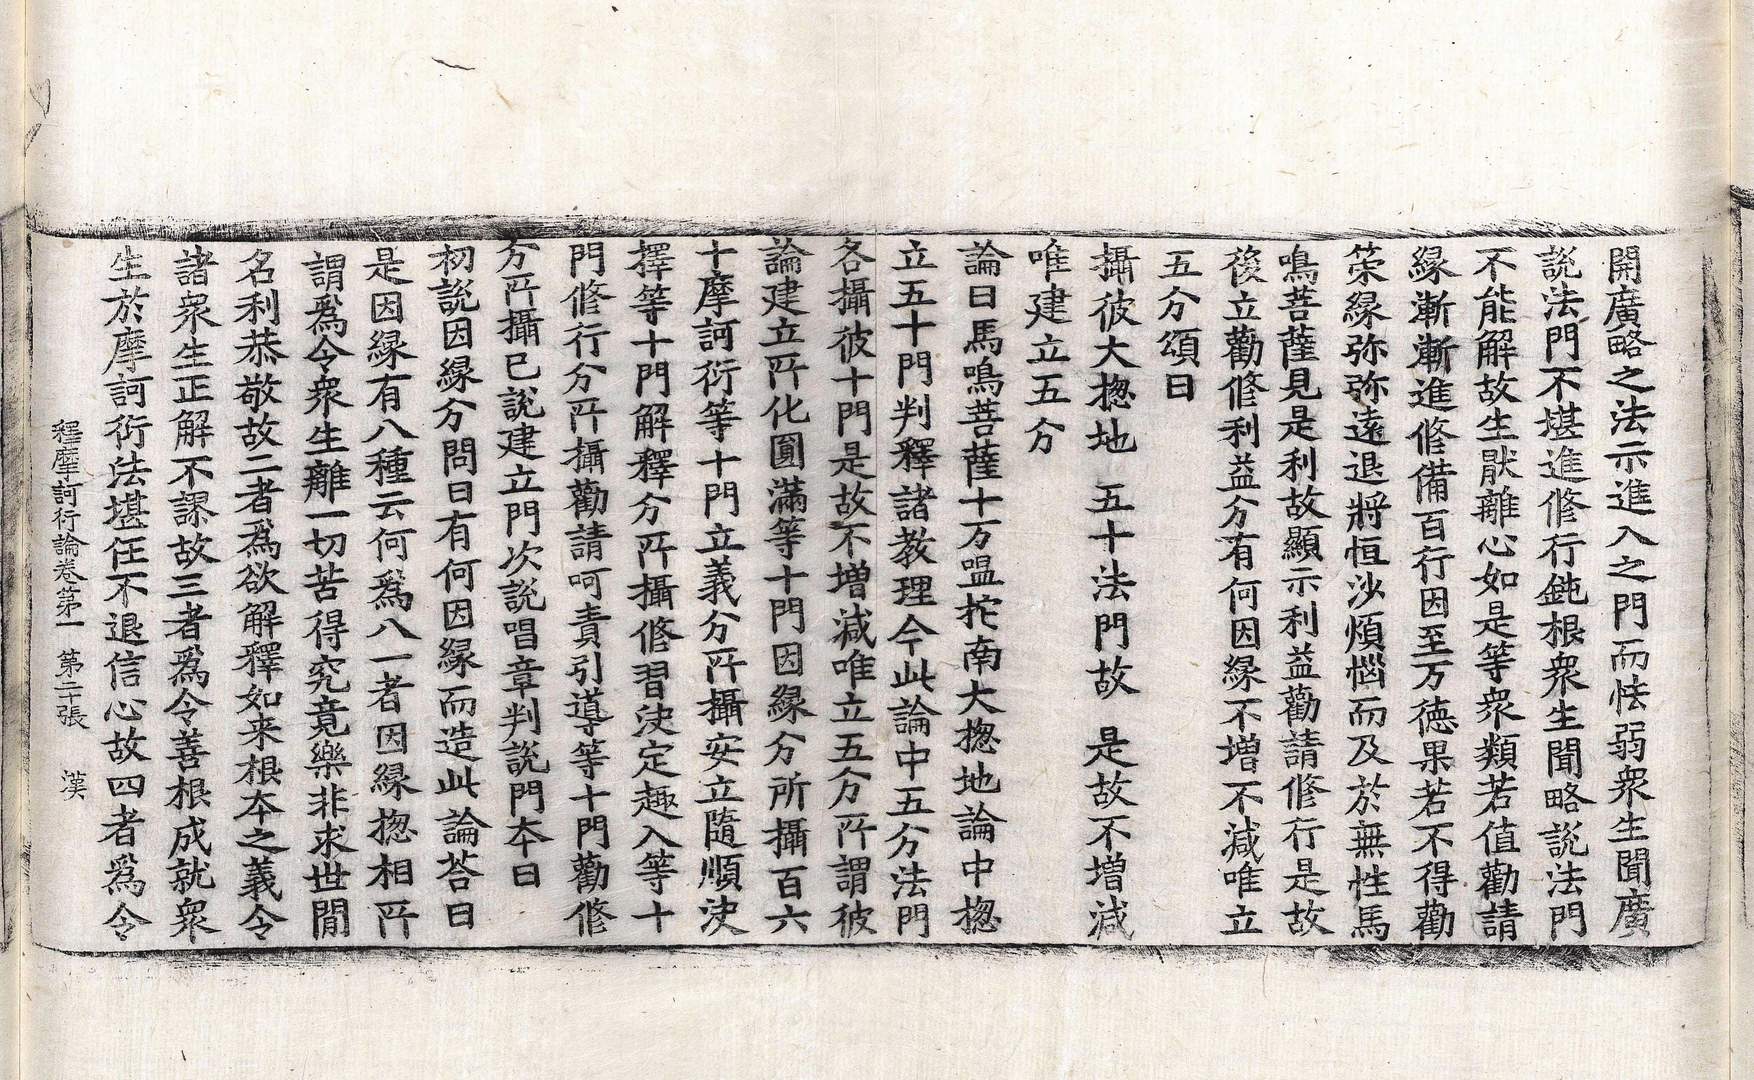 開廣略之法示進入之門而怯弱衆生聞廣
說法門不堪進修行鈍根衆生聞略說法門
不能解故生猒離心如是等衆類若值勸請
縁漸漸進修備百行因至万德果若不得勸
䇿縁弥弥遠退將恒沙煩惱而及於無性馬
鳴菩薩見是利故顯示利益勸請修行是故
後立勸修利益分有何因縁不增不減唯立
五分頌曰
攝彼大揔地 五十法門故 是故不增減
唯建立五分
論曰馬鳴菩薩十万嗢拕南大揔地論中揔
立五十門判釋諸教理今此論中五分法門
各攝彼十門是故不增減唯立五分所謂彼
論建立所化圓滿等十門因縁分所攝百六
十摩訶衍等十門立義分所攝安立隨順決
擇等十門解釋分所攝修習決定趣入等十
門修行分所攝勸請呵責引導等十門勸修
分所攝已說建立門次說唱章判說門本曰
初說因縁分問曰有何因縁而造此論荅曰
是因縁有八種云何爲八一者因縁揔相所
謂爲令衆生離一切苦得究竟樂非求世間
名利恭敬故二者爲欲解釋如来根本之義令
諸衆生正解不謬故三者爲令善根成就衆
生於摩訶衍法堪任不退信心故四者爲令
釋摩訶衍論卷第一 第二十張 漢